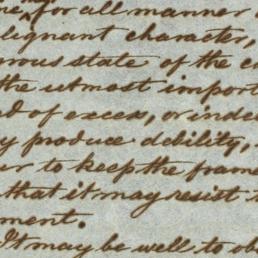 for all manner
lignant character,
rous state of the
the utmost import
d of excess, or inde
y produce debility,
ur to keep the frame
that it may resist
ment.
It may be well to ob